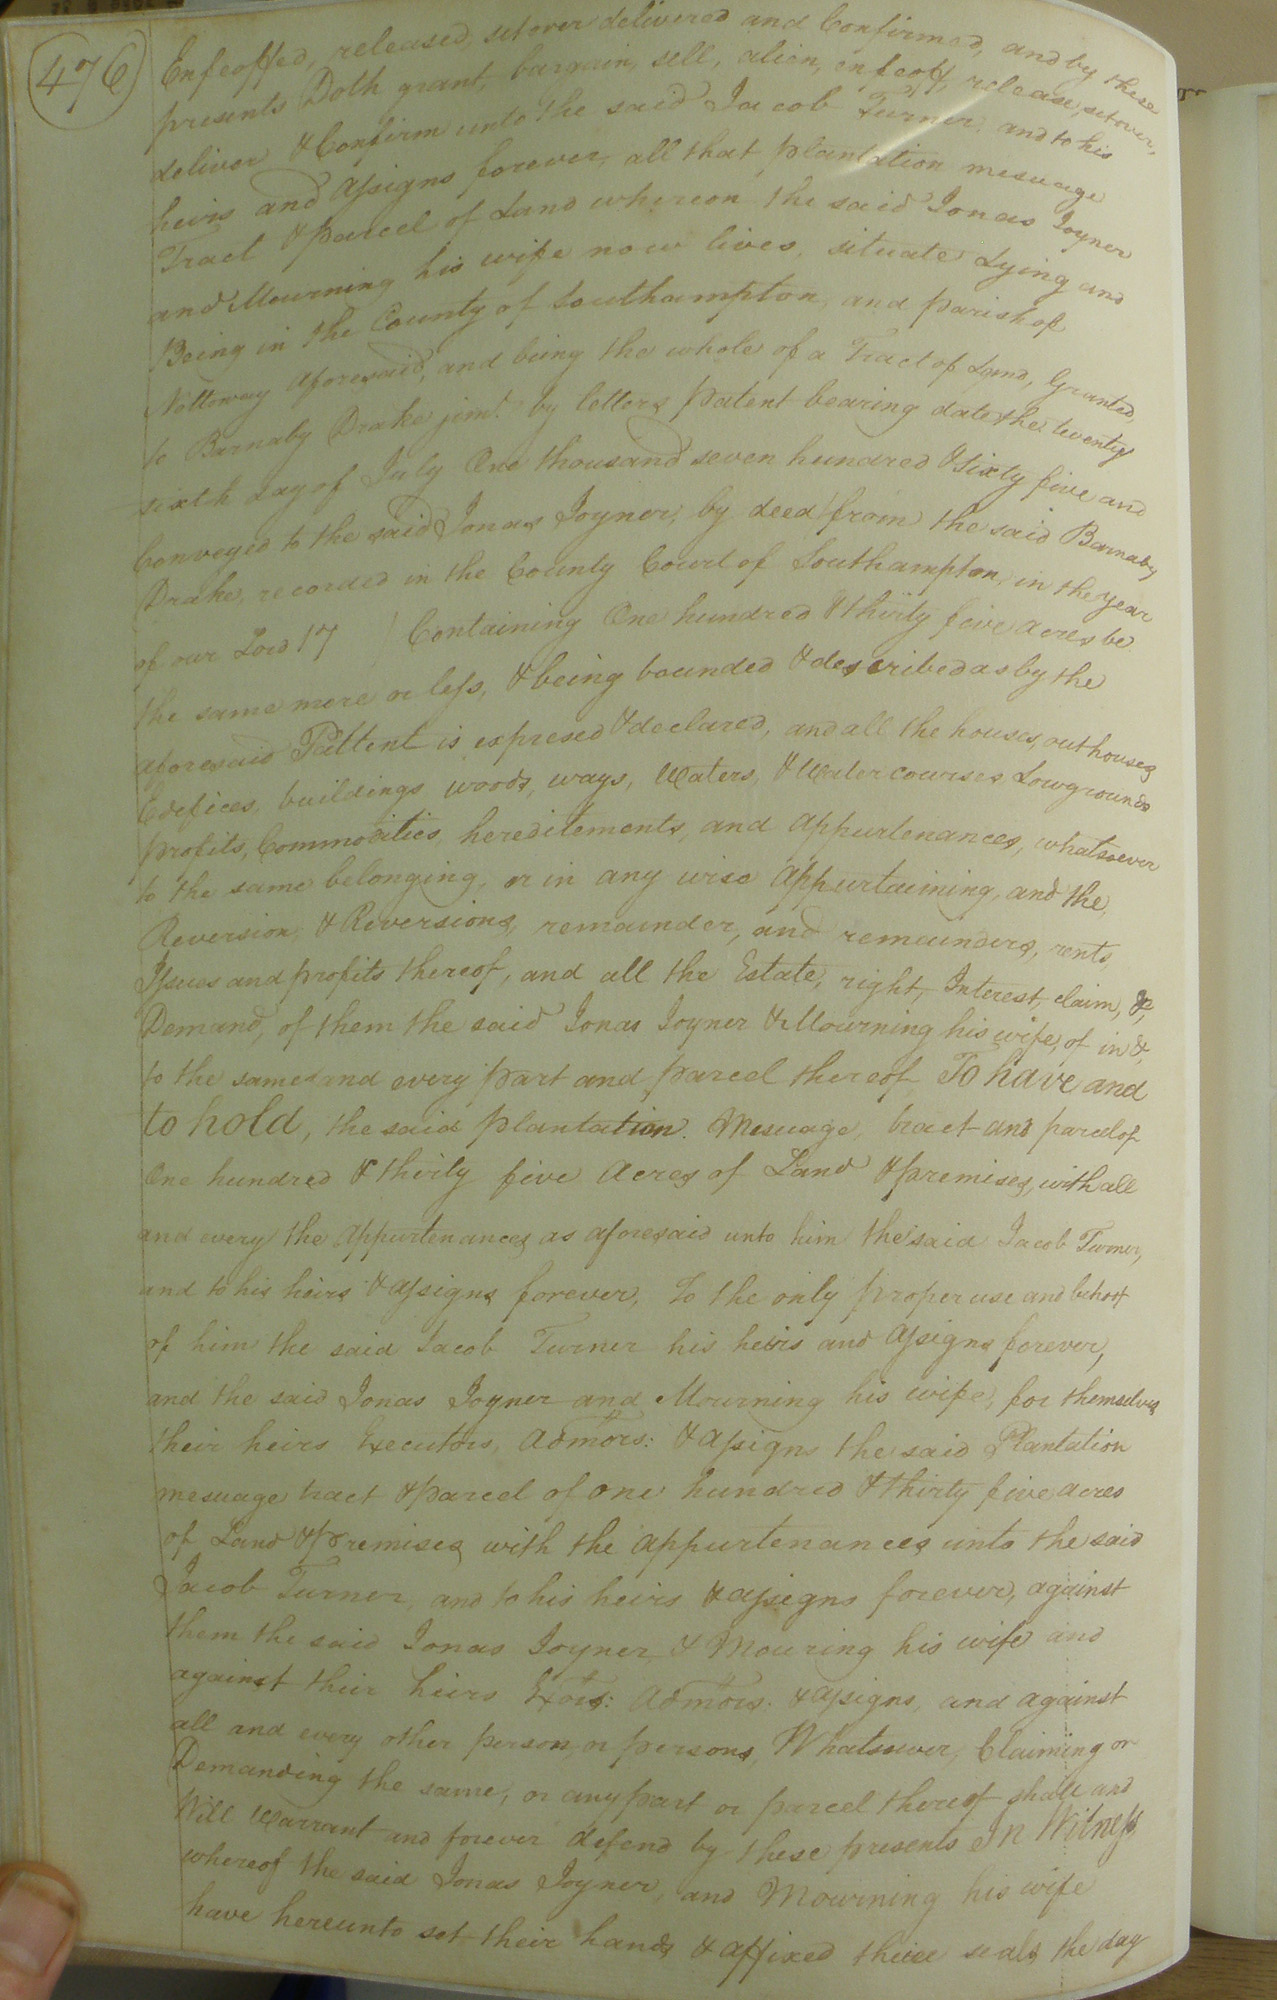 476
Enfeoffed, released, setover delivered and Confirmed, and by these
presents Doth grant, bargain, sell, alien, enfeoff, release, setover,
deliver & Confirm unto the said Jacob Turner, and to his
heirs and Assigns forever, all that plantation mesuage
Tract & parcel of Land whereon the said Jonas Joyner
and Mourning his wife now lives, situate Lying and
Being in the County of Southampton, and parish of
Nottoway aforesaid, and being the whole of a Tract of Land, Granted,
to Barnaby Drake junr. by letters patent bearing date the twenty
sixth day of July One thousand seven hundred & Sixty five and
Conveyed to the said Jonas Joyner, by deed from the said Barnaby
Drake, recorded in the County Court of Southampton, in the year
of our Lord 17 Containing One hundred & thirty five acres be
the same more or less, & being bounded & described as by the
aforesaid Pattent is expresed & declared, and all the houses, outhouses
Edefices, buildings, woods, ways, Waters, & Watercourses, Lowgrounds
profits, Commodities, hereditements, and appurtenances, whatsoever
to the same belonging, or in any wise appurtaining, and the
Reversion, & Reversions, remainder, and remainders, rents,
Issues and profits thereof, and all the Estate, right, Interest, claim, &,
Demand, of them the said Jonas Joyner & Mourning his wife, of in &,
to the same and every part and parcel thereof To have and
to hold, the said plantation. Mesuage, tract and parcel of
One hundred & thirty five Acres of Land & premises, with all
and every the appurtenances, as aforesaid unto him the said Jacob Turner,
and to his heirs & assigns forever, to the only proper use and behoof
of him the said Jacob Turner his heirs and Assigns forever,
and the said Jonas Joyner and Mourning his wife, for themselves
their heirs Executors, Admors: & assigns the said Plantation
mesuage tract & parcel of one hundred & thirty five acres
of Land & premises, with the appurtenances unto the said
Jacob Turner, and to his heirs & assigns forever, against
them the said Jonas Joyner & Mouring his wife and
against their heirs Exors: Admors. & assigns, and against
all and every other person, or persons, Whatsoever, Claiming or
Demanding the same, or any part or parcel thereof shall and
Will Warrant and forever defend by these presents In Witness
whereof the said Jonas Joyner, and Mourning his wife
have hereunto set their hands & affixed their seals the day